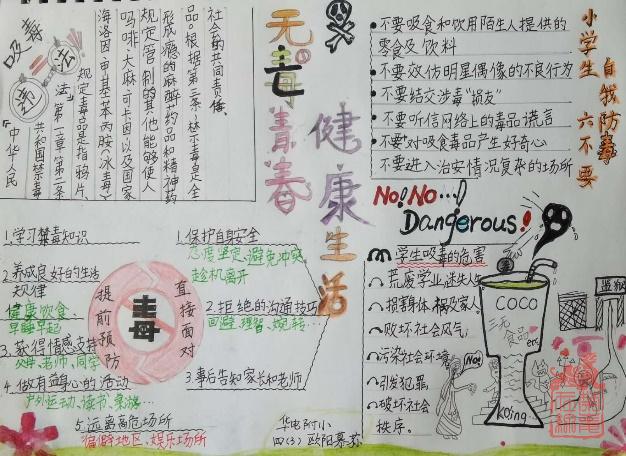 吸毒
违法
社会的共同责任。
品。根据第三条,禁示毒是全
形成瘾的麻醉药品和精神药
规定管制的其他能够使人
吗啡、大麻、可卡因以及国家
海洛因、甲基苯丙胺(冰毒)、
规定毒品是指鸦片、
法》第一章第二条
共和国禁毒
《中华人民
无毒青春
亡
健康生活
小学生自我防毒
六不要
不要吸食和饮用陌生人提供的
零食及饮料
不要效仿明星偶像的不良行为
不要结交涉毒“损友”
不要听信网络上的毒品谎言
不要对吸食毒品产生好奇心
不要进入治安情况复杂的场所
No! No…!
Dangerous!
学生吸毒的危害
荒废学业,迷失人生
损害身体,祸及家人
败坏社会风气
污染社会环境
引发犯罪,
破坏社会
秩序。
COCO
三无
食品
No!
koing
1.学习禁毒知识
2.养成良好的生活
规律
健康饮食
早睡早起
3.获得情感支持
父母、老师、同学
4.做有益身心的活动
户外运动、读书、旅游…
5.远离高危场所
偏僻地区、娱乐场所
提前预防
毒
直接面对
1.保护自身安全
态度坚定,避免冲突
趁机离开
2.拒绝的沟通技巧
回避、理智、婉转…
3.事后告知家长和老师
华电附小
四(3)欧阳慕苏